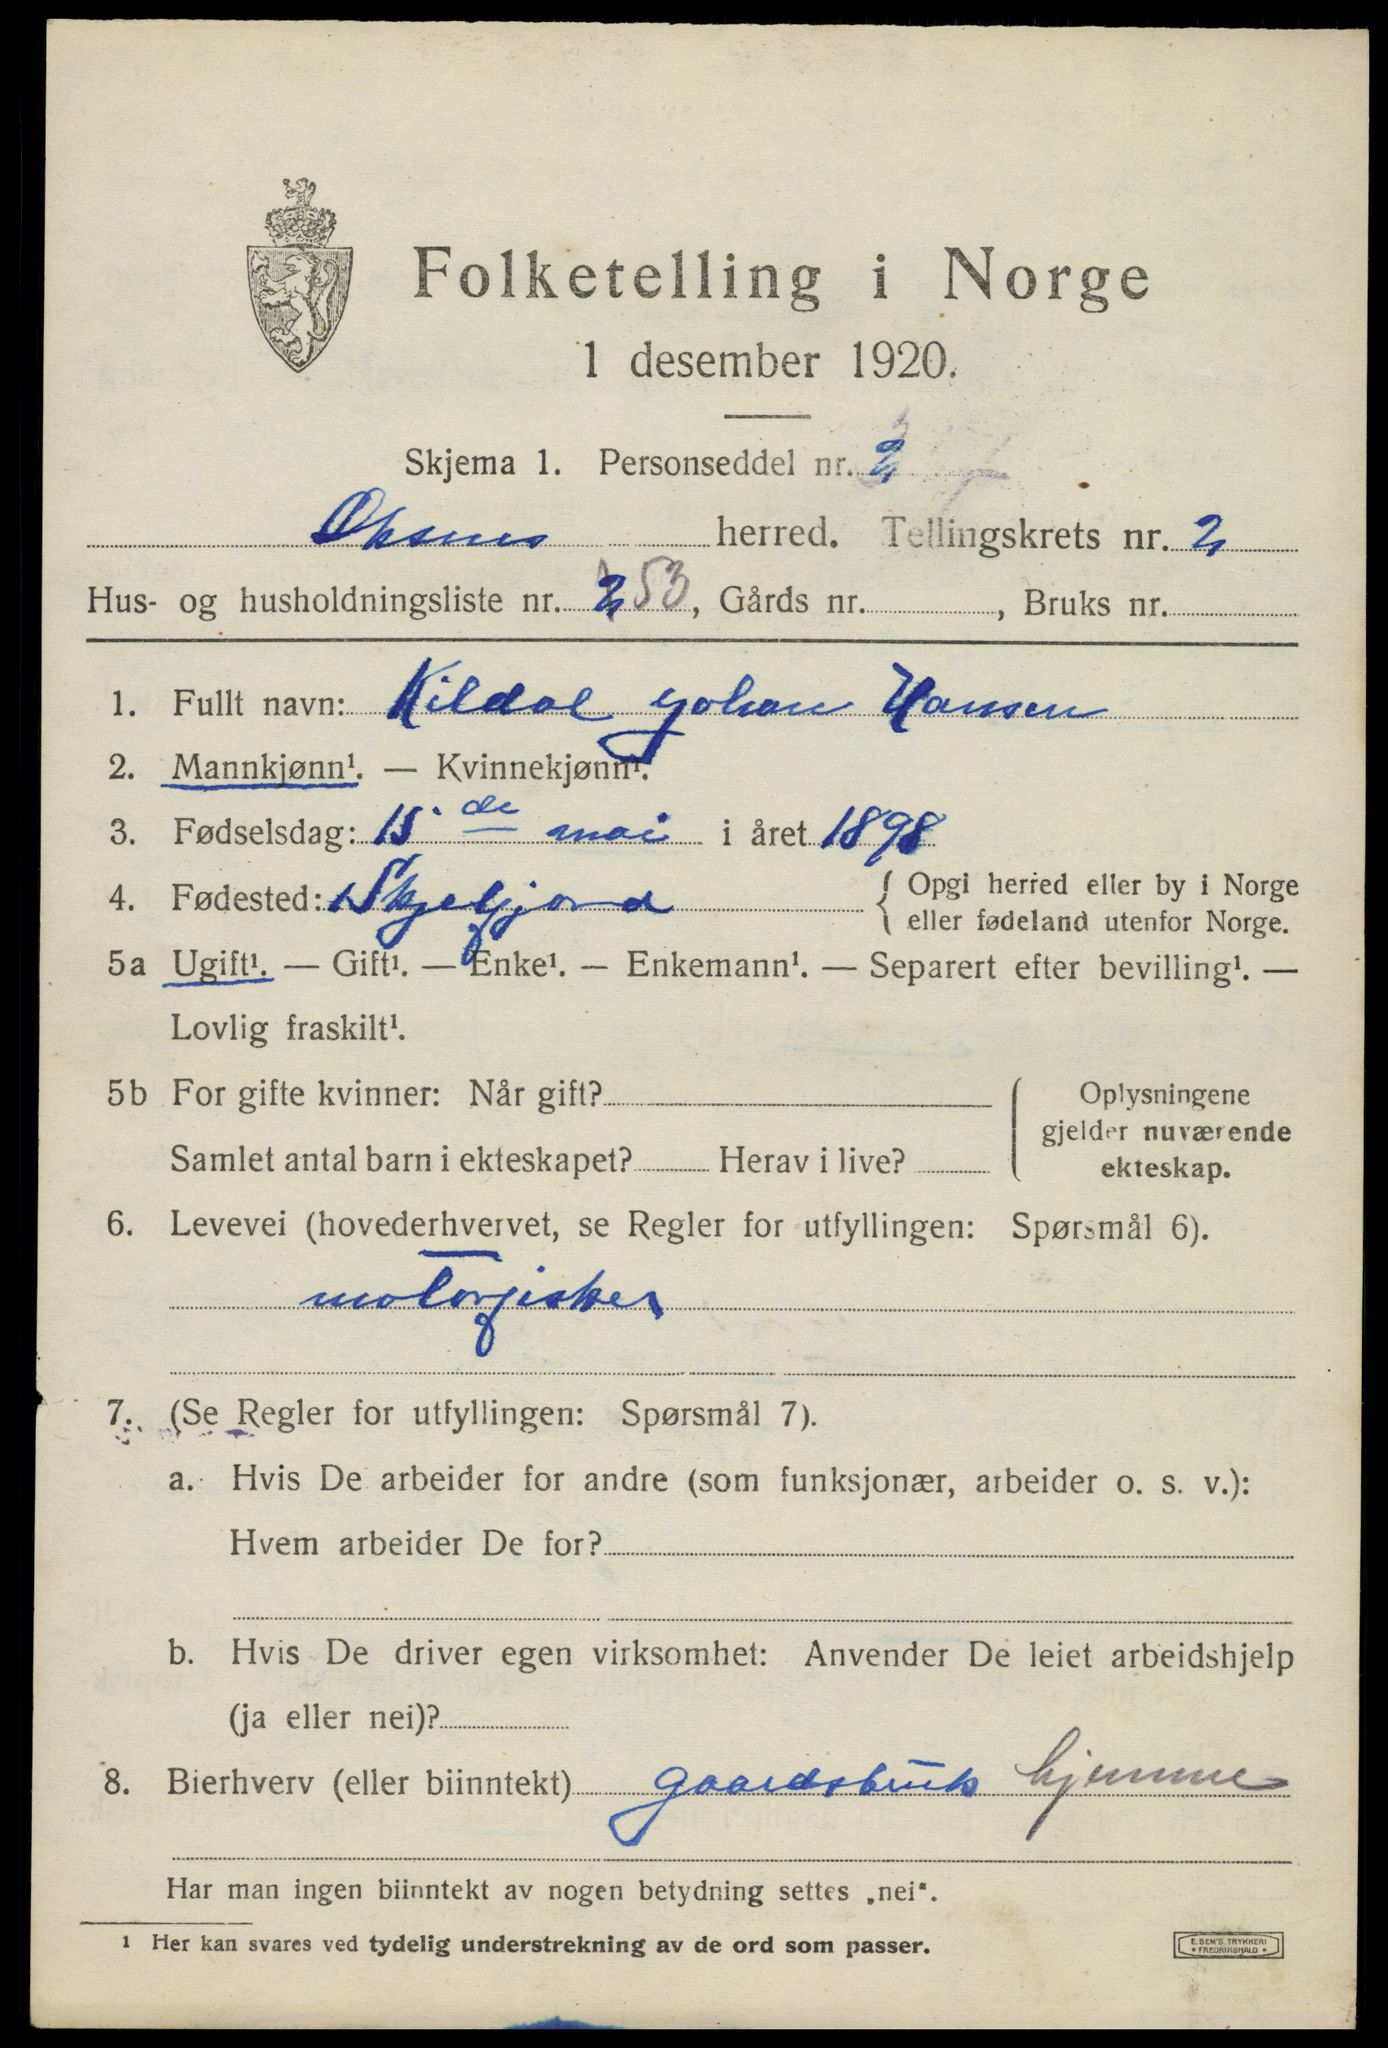 Folketelling i Norge
1 desember 1920.
Skjema 1. Personseddel nr. 2
Øksnes herred. Tellingskrets nr. 2
Hus- og husholdningsliste nr. 2 53, Gårds nr. , Bruks nr.
1. Fullt navn: Kildal Johan Hansen
2. Mannkjønn¹. — Kvinnekjønn¹.
3. Fødselsdag: 15de mai i året 1898
4. Fødested: Skjelfjord { Opgi herred eller by i Norge
eller fødeland utenfor Norge.
5a Ugift¹. — Gift¹. — Enke¹. — Enkemann¹. — Separert efter bevilling¹. —
Lovlig fraskilt¹.
5b For gifte kvinner: Når gift?
Samlet antal barn i ekteskapet? Herav i live?
Oplysningene
gjelder nuværende
ekteskap.
6. Levevei (hovederhvervet, se Regler for utfyllingen: Spørsmål 6).
motorfisker
7. (Se Regler for utfyllingen: Spørsmål 7).
a. Hvis De arbeider for andre (som funksjonær, arbeider o. s. v.):
Hvem arbeider De for?
b. Hvis De driver egen virksomhet: Anvender De leiet arbeidshjelp
(ja eller nei)?
8. Bierhverv (eller biinntekt) gaardsbruk hjemme
Har man ingen biinntekt av nogen betydning settes „nei“.
¹ Her kan svares ved tydelig understrekning av de ord som passer.
E. SEM'S TRYKKERI
FREDRIKSHALD